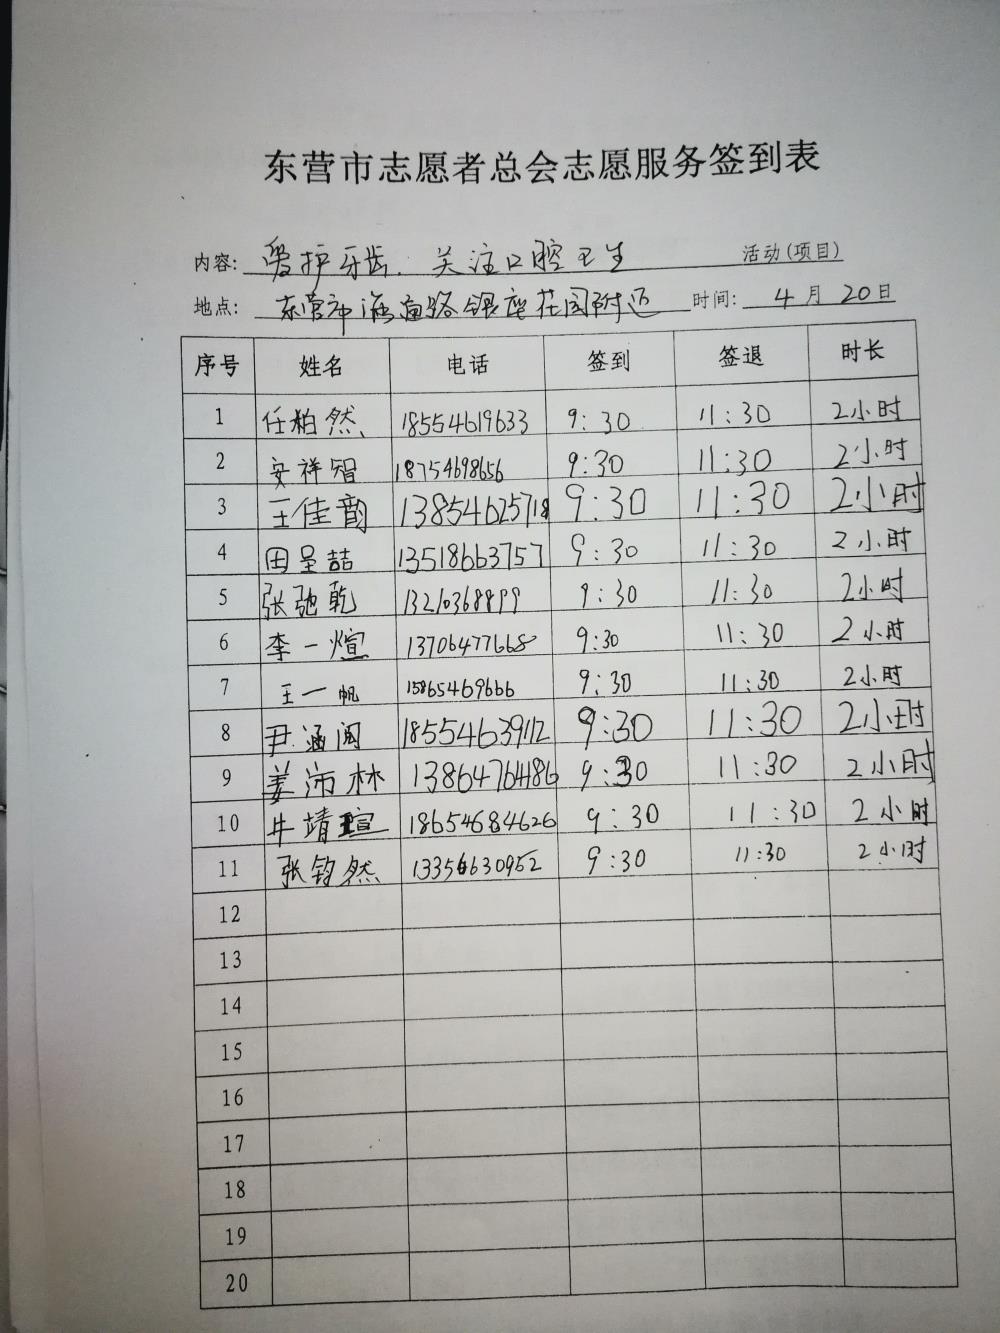 东营市志愿者总会志愿服务签到表
内容: 爱护牙齿. 关注口腔卫生 活动(项目)
地点: 东营市 海通路银座花园附近 时间: 4月20日
序号 姓名 电话 签到 签退 时长
1 任柏然、 18554619633 9:30 11:30 2小时
2 安祥智 18754698656 9:30 11:30 2小时
3 王佳韵 13854625718 9:30 11:30 2小时
4 田呈喆 13518663757 9:30 11:30 2小时
5 张弛乾 13210368899 9:30 11:30 2小时
6 李一煊 13706477668 9:30 11:30 2小时
7 王一帆 15865469666 9:30 11:30 2小时
8 尹涵阅 18554639112 9:30 11:30 2小时
9 姜沛林 13864764186 9:30 11:30 2小时
10 牛靖瑄 18654684626 9:30 11:30 2小时
11 张钧然 13356630952 9:30 11:30 2小时
12
13
14
15
16
17
18
19
20